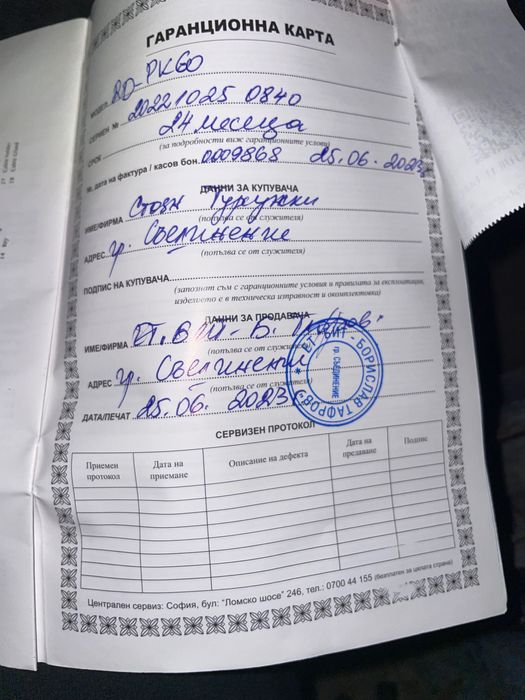 ГАРАНЦИОННА КАРТА
МОДЕЛ RD-PK60
СЕРИЕН № 20221025 0840
СРОК 24 месеца
(за подробности виж гаранционните условия)
№, дата на фактура / касов бон 0009868 25.06.2023
ДАННИ ЗА КУПУВАЧА
ИМЕ/ФИРМА Стоян
(попълва се от служителя)
АДРЕС гр. Съединение
(попълва се от служителя)
ПОДПИС НА КУПУВАЧА
(запознат съм с гаранционните условия и правилата за експлоатация,
изделието е в техническа изправност и окомплектовка)
ДАННИ ЗА ПРОДАВАЧА
ИМЕ/ФИРМА ЕТ. ВИТ - Б. Тафров
(попълва се от служителя)
АДРЕС гр. Съединение
(попълва се от служителя)
ДАТА/ПЕЧАТ 25.06.2023
ЕТ "ВИТ - БОРИСЛАВ ТАФРОВ"
гр. СЪЕДИНЕНИЕ
СЕРВИЗЕН ПРОТОКОЛ
Приемен протокол Дата на приемане Описание на дефекта Дата на предаване Подпис
Централен сервиз: София, бул: "Ломско шосе" 246, тел.: 0700 44 155 (безплатен за цялата страна)